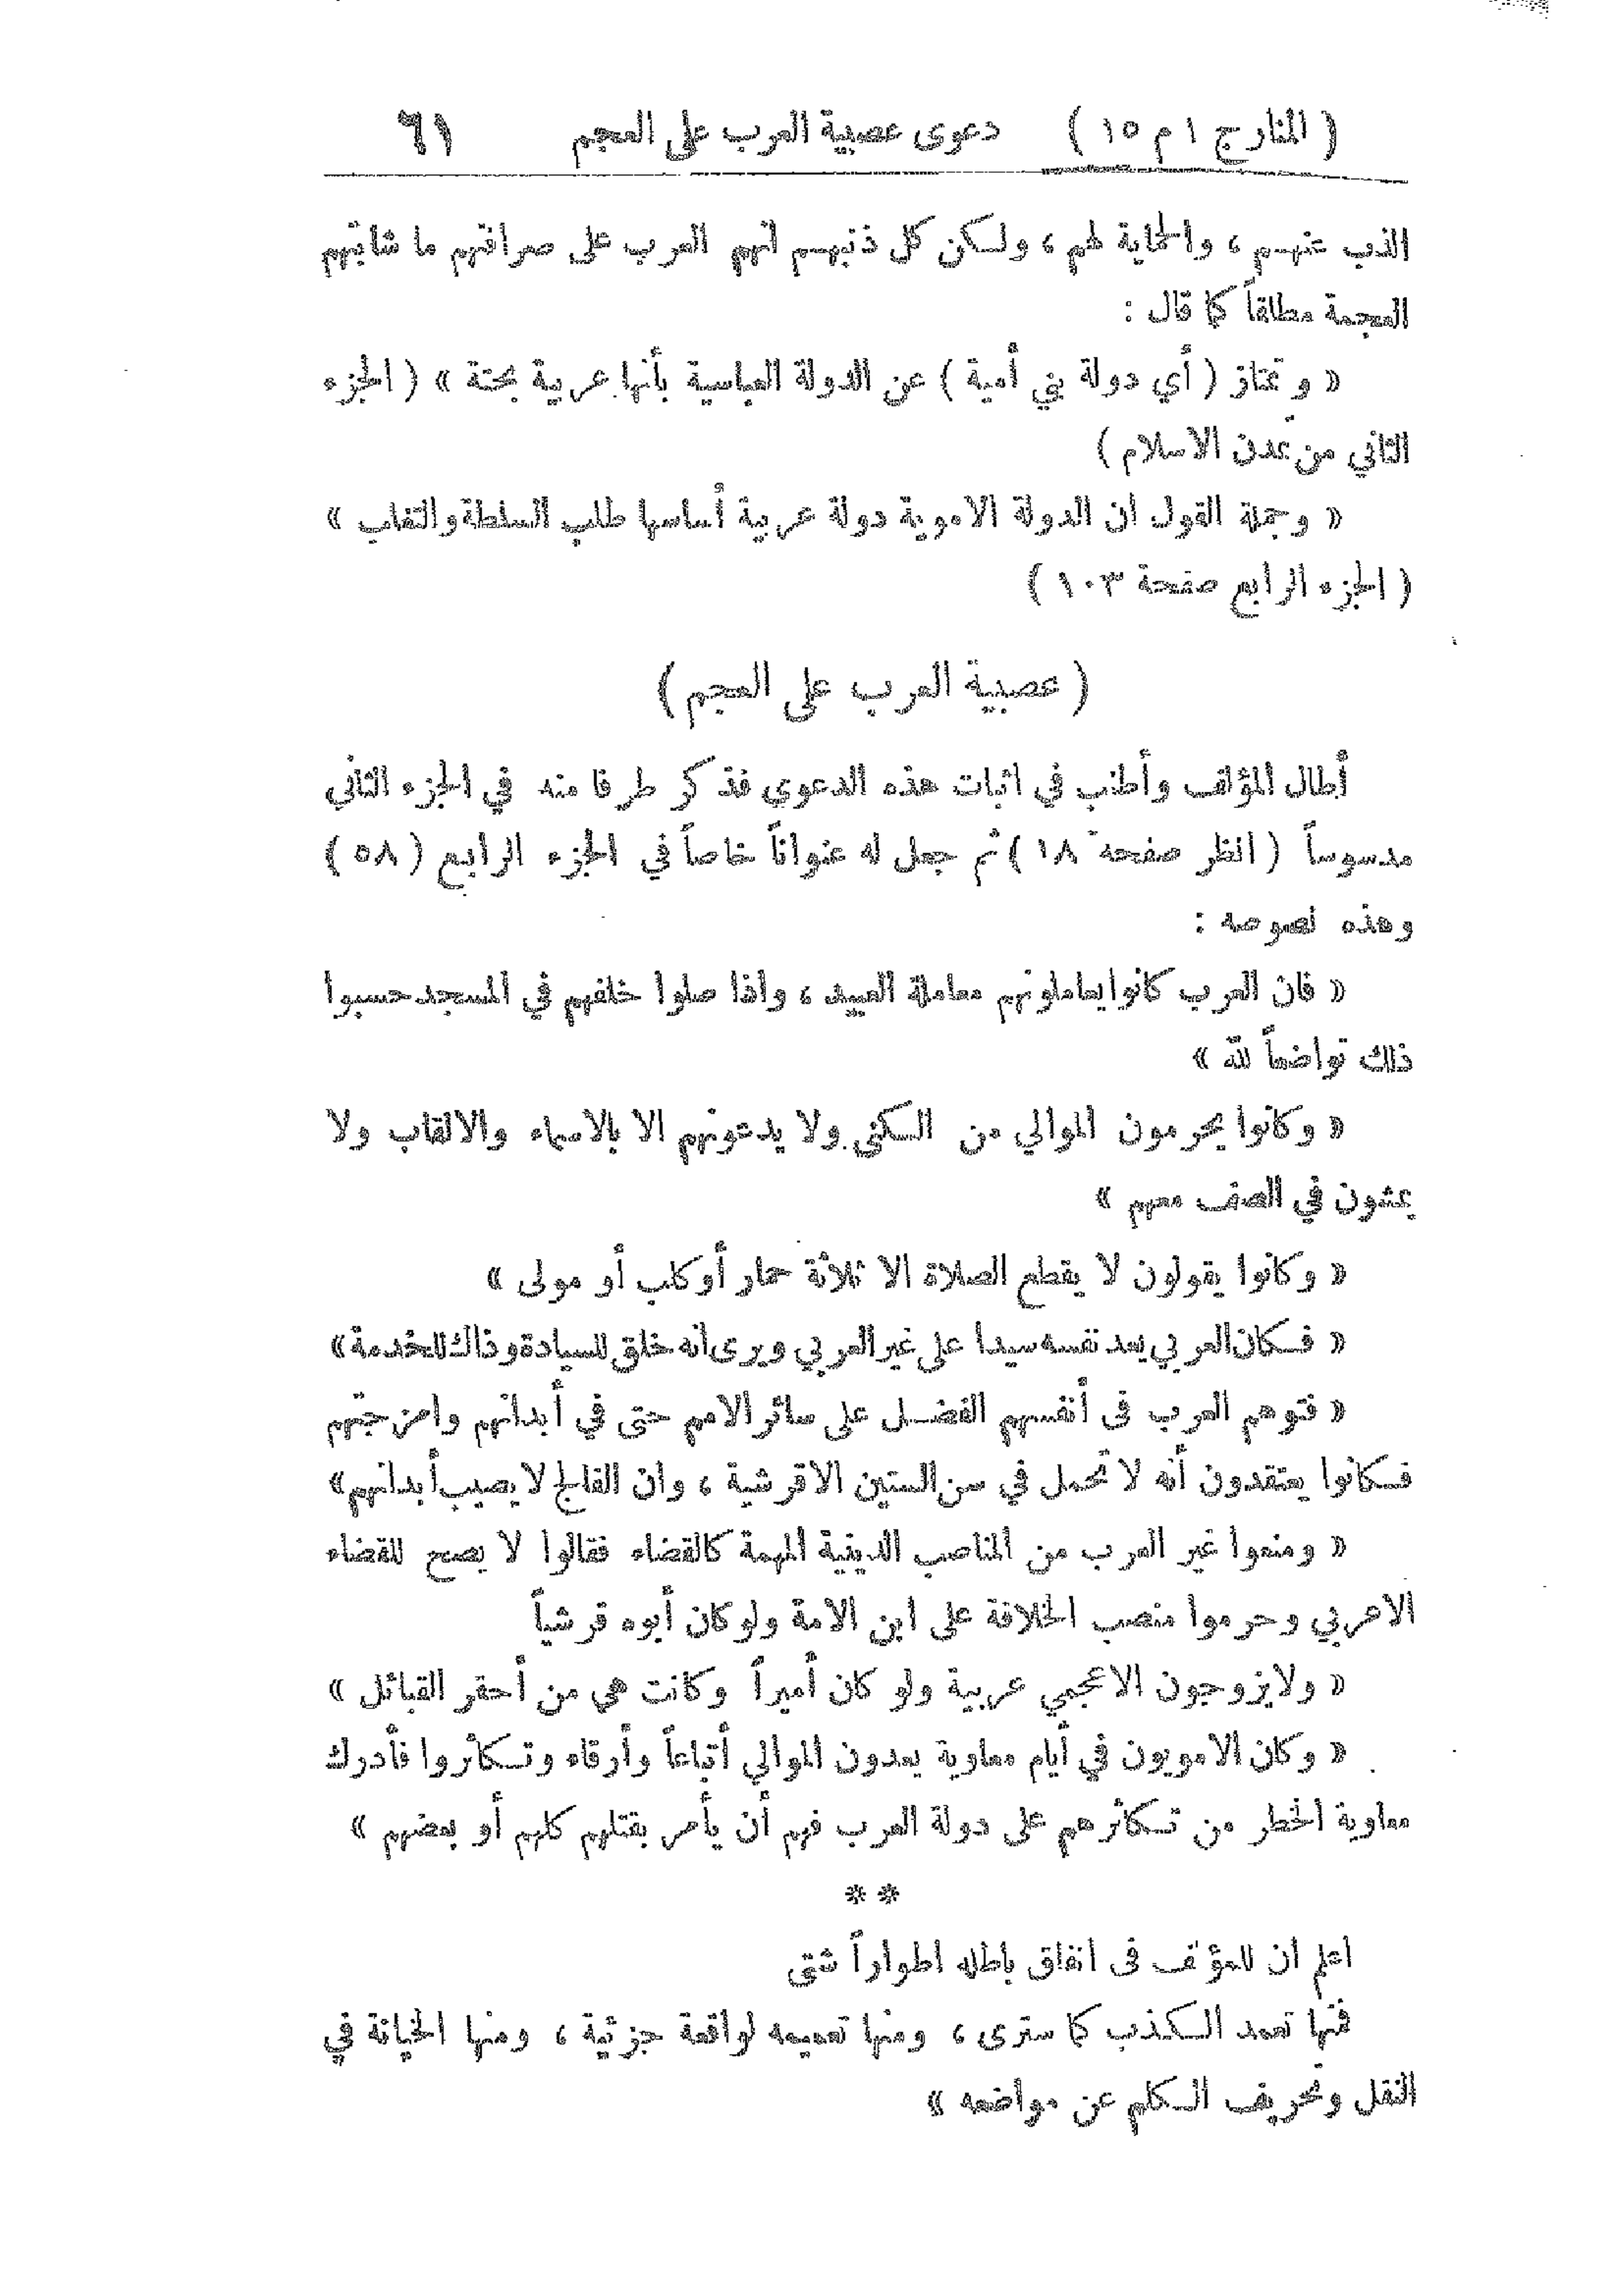 ( المنار ج ١ م ١٥ ) دعوى عصبية العرب على العجم ٦١
الذب عنهم ، والحماية لهم ، ولكن كل ذنبهم انهم العرب على صرافتهم ما شابتهم
العجمة مطلقاً كما قال :
« وتمتاز ( أي دولة بني أمية ) عن الدولة العباسية بأنها عربية بحتة » ( الجزء
الثاني من تمدن الاسلام )
« وجملة القول ان الدولة الاموية دولة عربية أساسها طلب السلطة والتغلب »
( الجزء الرابع صفحة ١٠٣ )
( عصبية العرب على العجم )
أطال المؤلف وأطنب في اثبات هذه الدعوى فذكر طرفا منه في الجزء الثاني
مدسوساً ( انظر صفحة ١٨ ) ثم جعل له عنواناً خاصاً في الجزء الرابع ( ٥٨ )
وهذه نصوصه :
« فان العرب كانوا يعاملونهم معاملة العبيد ، واذا صلوا خلفهم في المسجد حسبوا
ذلك تواضعاً لله »
« وكانوا يحرمون الموالي من الكنى ولا يدعونهم الا بالاسماء والالقاب ولا
يمشون في الصف معهم »
« وكانوا يقولون لا يقطع الصلاة الا ثلاثة حمار أو كلب أو مولى »
« فكان العربي يعد نفسه سيدا على غير العربي ويرى انه خلق للسيادة وذاك للخدمة »
« فتوهم العرب في أنفسهم الفضل على سائر الامم حتى في أبدانهم وامزجتهم
فكانوا يعتقدون أنه لا تحمل في سن الستين الا قرشية ، وان الفالج لا يصيب أبدانهم »
« ومنعوا غير العرب من المناصب الدينية المهمة كالقضاء فقالوا لا يصح للقضاء
الا عربي وحرموا منصب الخلافة على ابن الامة ولو كان أبوه قرشياً
« ولا يزوجون الاعجمي عربية ولو كان أميراً وكانت هي من أحقر القبائل »
« وكان الامويون في أيام معاوية يعدون الموالي أتباعاً وأرقاء وتكاثروا فأدرك
معاوية الخطر من تكاثرهم على دولة العرب فهم أن يأمر بقتلهم كلهم أو بعضهم »
* *
اعلم ان للمؤلف في انفاق باطله اطواراً شتى
فمنها تعمد الكذب كما سترى ، ومنها تعميمه لواقعة جزئية ، ومنها الخيانة في
النقل وتحريف الكلم عن مواضعه »